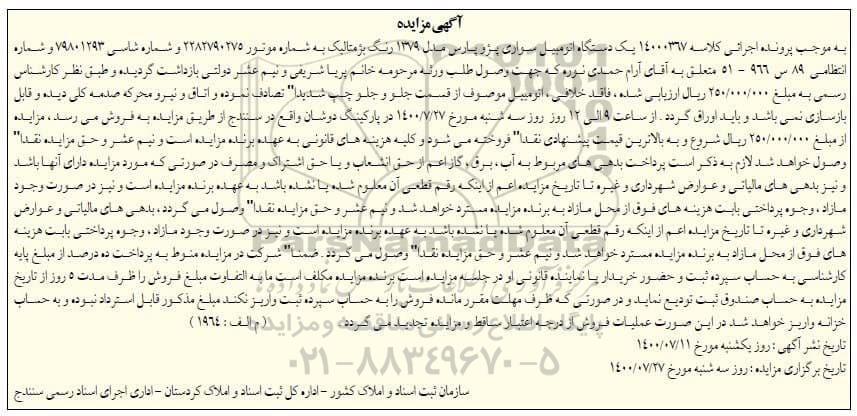 آگهی مزایده
به موجب پرونده اجرائی کلاسه ۱۴۰۰۰۳۶۷ یک دستگاه اتومبیل سواری پژو پارس مدل ۱۳۷۹ رنگ بژمتالیک به شماره موتور ۲۲۸۲۷۹۰۲۷۵ و شماره شاسی ۷۹۸۰۱۲۹۳ و شماره
انتظامی ۸۹ س ۹۶۶ - ۵۱ متعلق به آقای آرام حمدی نوره که جهت وصول طلب ورثه مرحومه خانم پریا شریفی و نیم عشر دولتی بازداشت گردیده و طبق نظر کارشناس
رسمی به مبلغ ۲۵۰/۰۰۰/۰۰۰ ریال ارزیابی شده ، فاقد خلافی ، اتومبیل موصوف از قسمت جلو و جلو چپ شدیدا" تصادف نموده و اتاق و نیرو محرکه صدمه کلی دیده و قابل
بازسازی نمی باشد و باید اوراق گردد . از ساعت ۹ الی ۱۲ روز روز سه شنبه مورخ ۱۴۰۰/۷/۲۷ در پارکینگ دوشان واقع در سنندج از طریق مزایده به فروش می رسد ، مزایده
از مبلغ ۲۵۰/۰۰۰/۰۰۰ ریال شروع و به بالاترین قیمت پیشنهادی نقدا" فروخته می شود و کلیه هزینه های قانونی به عهده برنده مزایده است و نیم عشر و حق مزایده نقدا"
وصول خواهد شد لازم به ذکر است پرداخت بدهی های مربوط به آب ، برق ، گاز اعم از حق انشعاب و یا حق اشتراک و مصرف در صورتی که مورد مزایده دارای آنها باشد
و نیز بدهی های مالیاتی و عوارض شهرداری و غیره تا تاریخ مزایده اعم از اینکه رقم قطعی آن معلوم شده یا نشده باشد به عهده برنده مزایده است و نیز در صورت وجود
مازاد ، وجوه پرداختی بابت هزینه های فوق از محل مازاد به برنده مزایده مسترد خواهد شد و نیم عشر و حق مزایده نقدا" وصول می گردد ، بدهی های مالیاتی و عوارض
شهرداری و غیره تا تاریخ مزایده اعم از اینکه رقم قطعی آن معلوم شده یا نشده باشد به عهده برنده مزایده است و نیز در صورت وجود مازاد ، وجوه پرداختی بابت هزینه
های فوق از محل مازاد به برنده مزایده مسترد خواهد شد و نیم عشر و حق مزایده نقدا" وصول می گردد . ضمنا" شرکت در مزایده منوط به پرداخت ده درصد از مبلغ پایه
کارشناسی به حساب سپرده ثبت و حضور خریدار یا نماینده قانونی او در جلسه مزایده است برنده مزایده مکلف است ما به التفاوت مبلغ فروش را ظرف مدت ۵ روز از تاریخ
مزایده به حساب صندوق ثبت تودیع نماید و در صورتی که ظرف مهلت مقرر مانده فروش را به حساب سپرده ثبت واریز نکند مبلغ مذکور قابل استرداد نبوده و به حساب
خزانه واریز خواهد شد در این صورت عملیات فروش از درجه اعتبار ساقط و مزایده تجدید می گردد ( م الف : ۱۹۶۴ )
تاریخ نشر آگهی : روز یکشنبه مورخ ۱۴۰۰/۰۷/۱۱
تاریخ برگزاری مزایده : روز سه شنبه مورخ ۱۴۰۰/۰۷/۲۷
سازمان ثبت اسناد و املاک کشور - اداره کل ثبت اسناد و املاک کردستان - اداری اجرای اسناد رسمی سنندج
ParsNamadData
۰۲۱-۸۸۳۴۹۶۷۰-۵